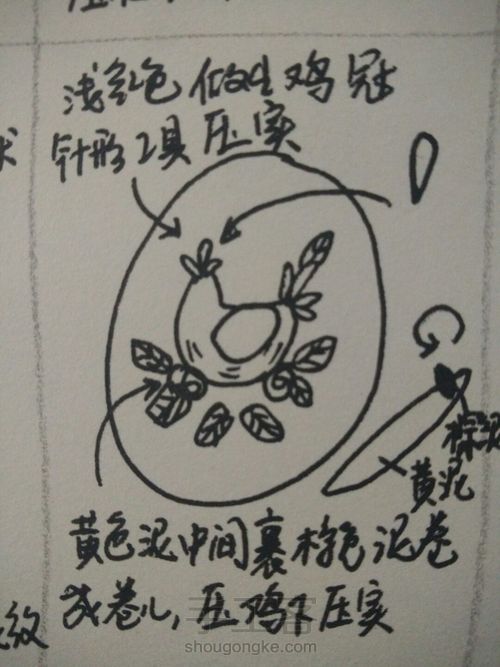 浅红色做出鸡冠
针形工具压实
棕泥
黄泥
黄色泥中间裹棕色泥卷
成卷儿,压鸡下压实
纹
手工客
shougongke.com